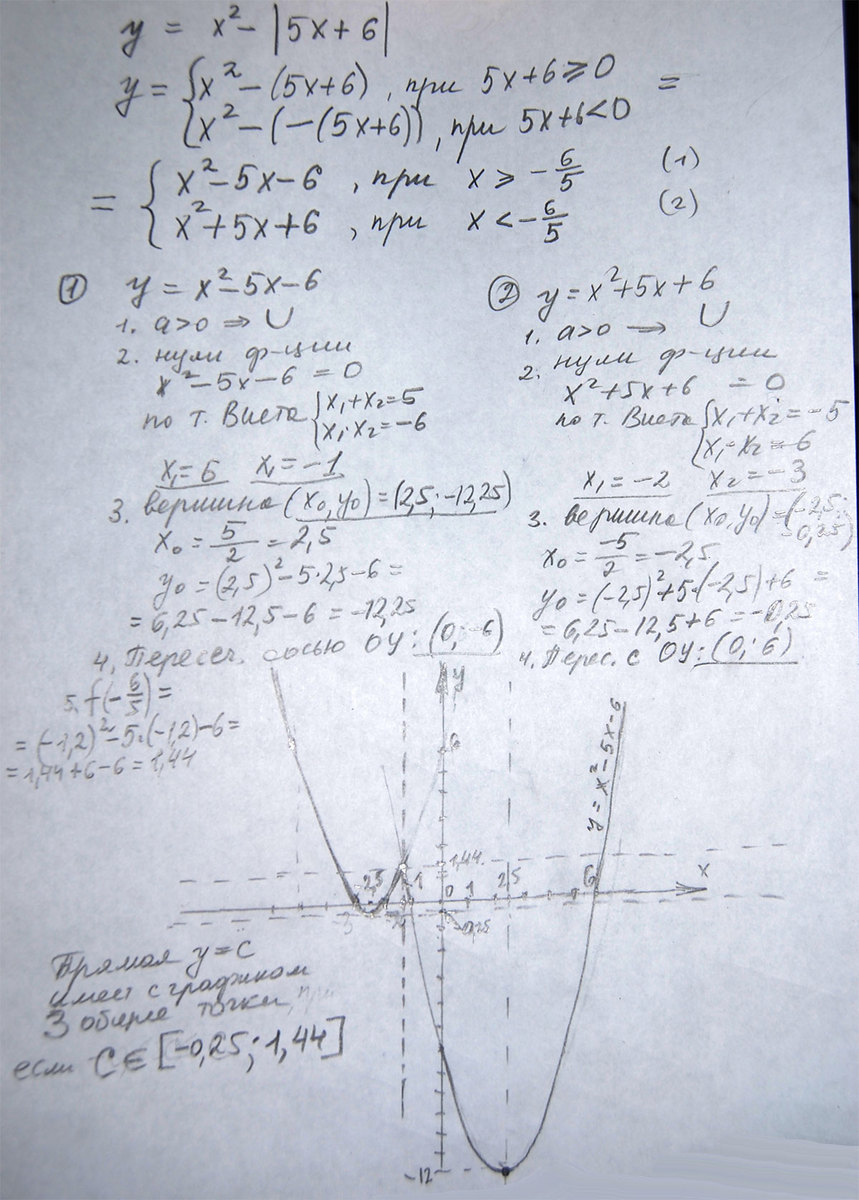 y = x² - |5x+6|
y = { x² - (5x+6) , при 5x+6 ⩾ 0 =
{ x² - (-(5x+6)) , при 5x+6 < 0
= { x² - 5x - 6 , при x ⩾ -6/5 (1)
{ x² + 5x + 6 , при x < -6/5 (2)
① y = x² - 5x - 6
1. a>0 ⇒ ∪
2. нули ф-ции
x² - 5x - 6 = 0
по т. Виета { x₁+x₂=5
{ x₁·x₂=-6
x₁=6 x₁=-1
3. вершина (x₀, y₀) = (2,5; -12,25)
x₀ = 5/2 = 2,5
y₀ = (2,5)² - 5·2,5 - 6 =
= 6,25 - 12,5 - 6 = -12,25
4. Пересеч. с осью OY: (0; -6)
5. f(-6/5) =
= (-1,2)² - 5·(-1,2) - 6 =
= 1,44 + 6 - 6 = 1,44
② y = x² + 5x + 6
1. a>0 → ∪
2. нули ф-ции
x² + 5x + 6 = 0
по т. Виета { x₁+x₂=-5
{ x₁·x₂=6
x₁=-2 x₂=-3
3. вершина (x₀, y₀) = (-2,5; -0,25)
x₀ = -5/2 = -2,5
y₀ = (-2,5)² + 5·(-2,5) + 6 =
= 6,25 - 12,5 + 6 = -0,25
4. Перес. с OY: (0; 6)
y
6
y = x² - 5x - 6
1,44
x
2,5 -1 0 1 2,5 6
-3
-0,25
-12
Прямая y=c
имеет с графиком
3 общие точки, при
если C ∈ [-0,25; 1,44]